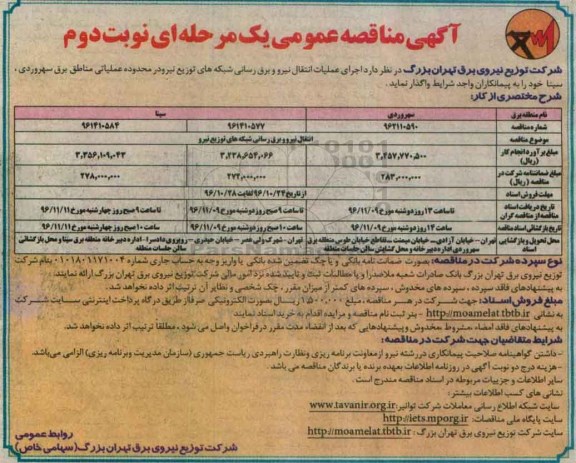 آگهی مناقصه عمومی یک مرحله ای نوبت دوم
شرکت توزیع نیروی برق تهران بزرگ در نظر دارد اجرای عملیات انتقال نیرو و برق رسانی شبکه های توزیع نیرو در محدوده عملیاتی مناطق برق سهروردی ،
سینا خود را به پیمانکاران واجد شرایط واگذار نماید .
شرح مختصری از کار:
نام منطقه برق سهروردی سینا
شماره مناقصه ۹۶۲۱۱۰۵۹۰ ۹۶۱۴۱۰۵۷۷ ۹۶۱۴۱۰۵۸۴
موضوع مناقصه انتقال نیرو و برق رسانی شبکه های توزیع نیرو
مبلغ برآورد انجام کار (ریال) ۳,۴۵۷,۷۷۰,۵۰۰ ۳,۲۳۸,۶۵۴,۰۶۶ ۳,۳۵۶,۱۰۹,۰۴۳
مبلغ ضمانتنامه شرکت در مناقصه (ریال) ۲۸۳,۰۰۰,۰۰۰ ۲۷۲,۰۰۰,۰۰۰ ۲۷۸,۰۰۰,۰۰۰
مهلت فروش اسناد از تاریخ ۹۶/۱۰/۲۴ لغایت ۹۶/۱۰/۲۸
تاریخ دریافت اسناد مناقصه از مناقصه گران تا ساعت ۱۳ روز دوشنبه مورخ ۹۶/۱۱/۰۹ تا ساعت ۹ صبح روز دوشنبه مورخ ۹۶/۱۱/۰۹ تا ساعت ۹ صبح روز چهارشنبه مورخ ۹۶/۱۱/۱۱
تاریخ بازگشائی اسناد مناقصه ساعت ۱۴ روز دوشنبه مورخ ۹۶/۱۱/۰۹ ساعت ۱۰ صبح روز دوشنبه مورخ ۹۶/۱۱/۰۹ ساعت ۱۰ صبح روز چهارشنبه مورخ ۹۶/۱۱/۱۱
محل تحویل و بازگشایی اسناد تهران - خیابان آزادی - خیابان میمنت - تقاطع خیابان طوس منطقه برق سهروردی اداره دبیرخانه و محل گشایش سالن جلسات منطقه تهران - شهرک ولی عصر - خیابان حیدری - روبروی دادسرا - اداره دبیرخانه منطقه برق سینا و محل بازگشائی سالن جلسات منطقه
نوع سپرده شرکت در مناقصه: بصورت ضمانت نامه بانکی و یا چک تضمین شده بانکی یا واریز وجه به حساب جاری شماره ۰۱۰۱۸۰۱۱۷۱۰۰۴ بنام شرکت
توزیع نیروی برق تهران بزرگ بانک صادرات شعبه ملاصدرا و یا مطالبات ثبت و تایید شده نزد امور مالی شرکت توزیع نیروی برق تهران بزرگ ارائه نمایند.
به پیشنهادهای فاقد سپرده ، سپرده های مخدوش ، سپرده های کمتر از میزان مقرر ، چک شخصی و نظایر آن ترتیب اثر داده نخواهد شد.
مبلغ فروش اسناد: جهت شرکت در هر مناقصه ، مبلغ ۱۵۰۰,۰۰۰ ریال بصورت الکترونیکی صرفا از طریق درگاه پرداخت اینترنتی سایت شرکت
به نشانی http://moamelat.tbtb.ir - بتر ثبت نام مناقصه و مزایده اقدام به خرید اسناد نمایند
به پیشنهادهای فاقد امضاء ، مشروط مخدوش و پیشنهادهایی که بعد از انقضاء مدت مقرر در فراخوان واصل می شود ، مطلقا ترتیب اثر داده نخواهد شد.
شرایط متقاضیان جهت شرکت در مناقصه:
- داشتن گواهینامه صلاحیت پیمانکاری در رشته نیرو از معاونت برنامه ریزی و نظارت راهبردی ریاست جمهوری (سازمان مدیریت و برنامه ریزی) الزامی می باشد.
- هزینه درج دو نوبت آگهی در روزنامه اطلاعات بعهده برنده یا برندگان مناقصه می باشد.
سایر اطلاعات و جزییات مربوطه در اسناد مناقصه مندرج است .
نشانی های کسب اطلاعات بیشتر:
سایت شبکه اطلاع رسانی معاملات شرکت توانیر: www.tavanir.org.ir
سایت پایگاه ملی مناقصات: http://iets.mporg.ir
سایت شرکت توزیع نیروی برق تهران بزرگ : http://moamelat.tbtb.ir
روابط عمومی
شرکت توزیع نیروی برق تهران بزرگ (سهامی خاص)